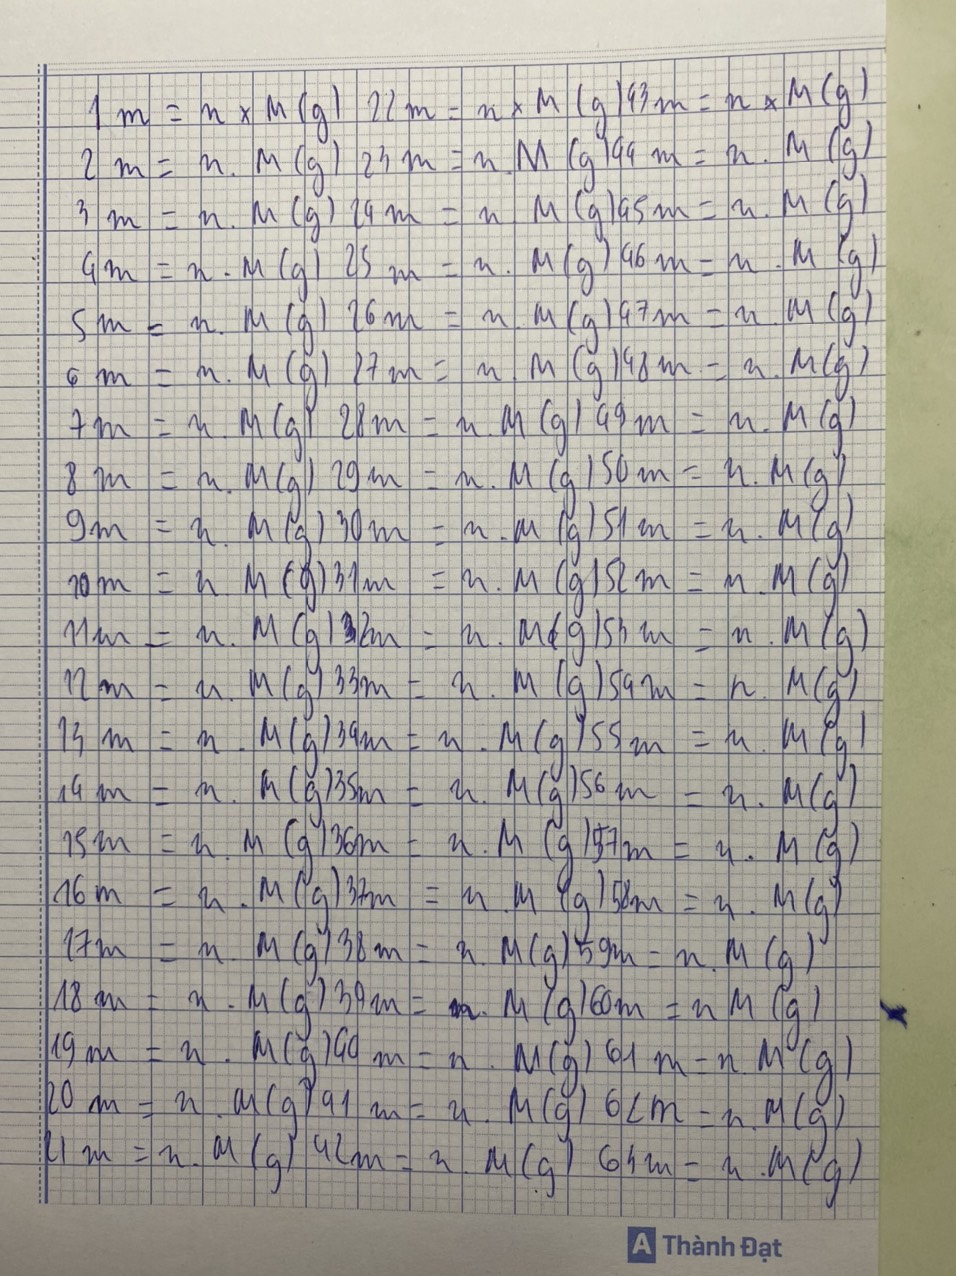 1 m = n x M (g) 22 m = n x M (g) 43 m = n x M (g)
2 m = n. M (g) 23 m = n. M (g) 44 m = n. M (g)
3 m = n. M (g) 24 m = n. M (g) 45 m = n. M (g)
4 m = n. M (g) 25 m = n. M (g) 46 m = n. M (g)
5 m = n. M (g) 26 m = n. M (g) 47 m = n. M (g)
6 m = n. M (g) 27 m = n. M (g) 48 m = n. M (g)
7 m = n. M (g) 28 m = n. M (g) 49 m = n. M (g)
8 m = n. M (g) 29 m = n. M (g) 50 m = n. M (g)
9 m = n. M (g) 30 m = n. M (g) 51 m = n. M (g)
10 m = n M (g) 31 m = n. M (g) 52 m = n. M (g)
11 m = n. M (g) 32 m = n. M (g) 53 m = n. M (g)
12 m = n. M (g) 33 m = n. M (g) 54 m = n. M (g)
13 m = n. M (g) 34 m = n. M (g) 55 m = n. M (g)
14 m = n. M (g) 35 m = n. M (g) 56 m = n. M (g)
15 m = n. M (g) 36 m = n. M (g) 57 m = n. M (g)
16 m = n. M (g) 37 m = n. M (g) 58 m = n. M (g)
17 m = n. M (g) 38 m = n. M (g) 59 m = n. M (g)
18 m = n. M (g) 39 m = n. M (g) 60 m = n M (g)
19 m = n. M (g) 40 m = n. M (g) 61 m = n. M (g)
20 m = n. M (g) 41 m = n. M (g) 62 m = n. M (g)
21 m = n. M (g) 42 m = n. M (g) 63 m = n. M (g)
A Thành Đạt